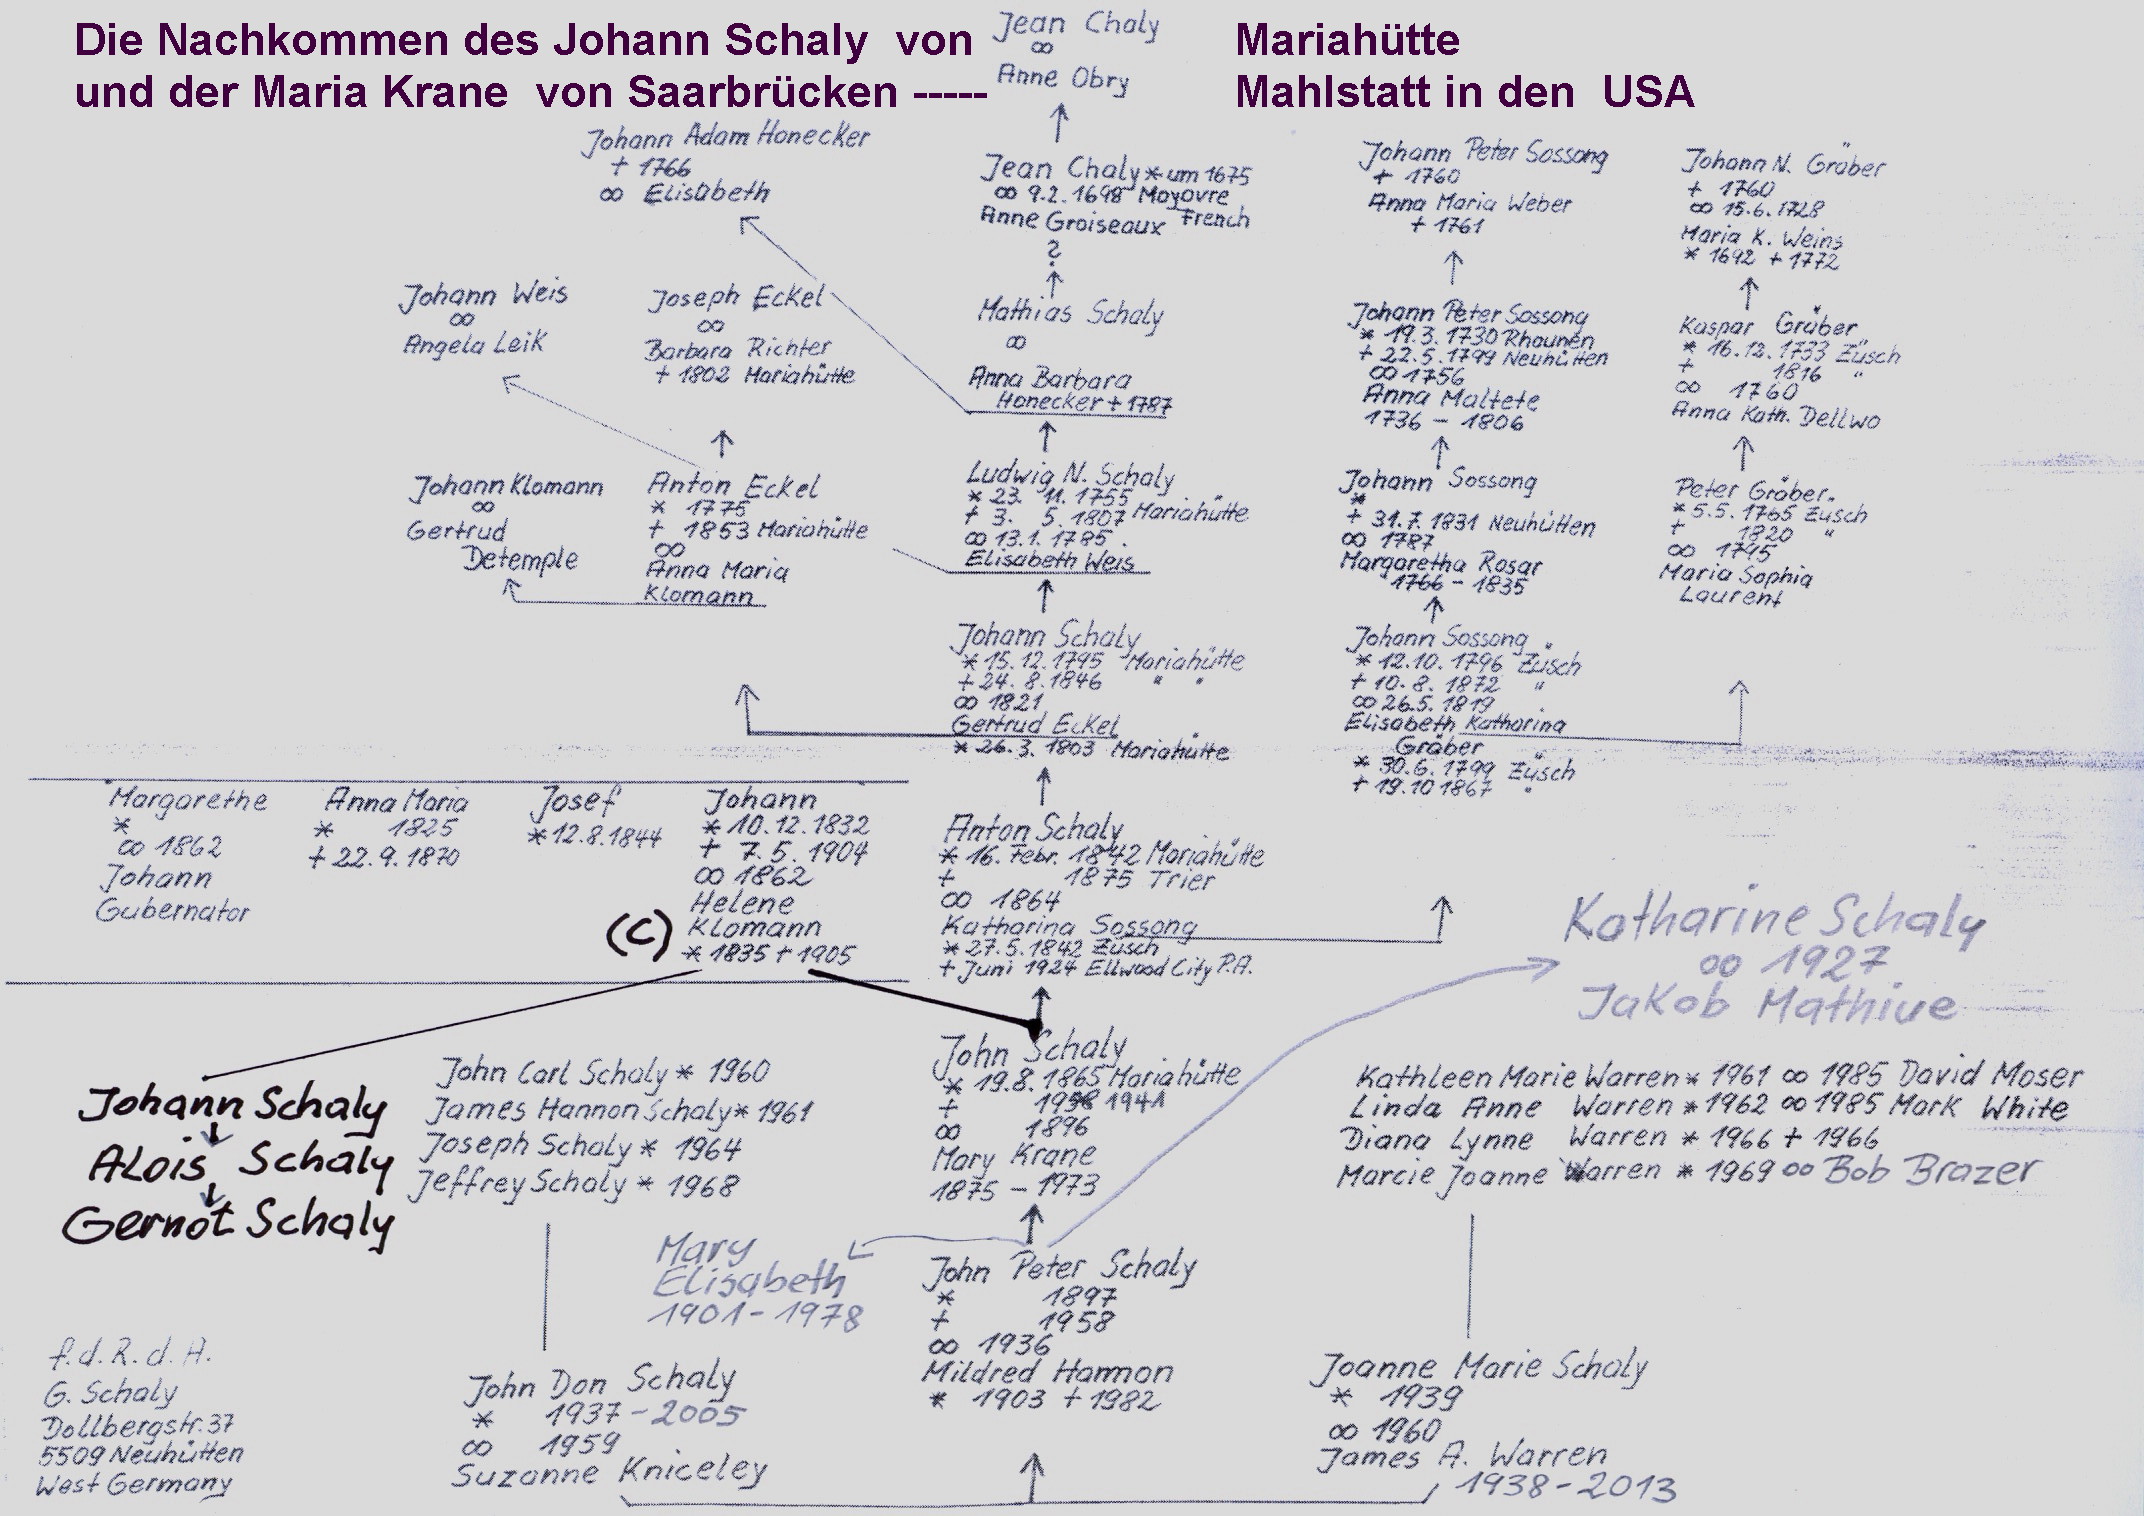 Die Nachkommen des Johann Schaly von Mariahütte
und der Maria Krane von Saarbrücken ----- Mahlstatt in den USA
Jean Chaly
∞
Anne Obry
Johann Adam Honecker
+ 1766
∞ Elisabeth
Jean Chaly * um 1675
∞ 9.2.1698 Moyovre
Anne Groiseaux French
?
Johann Peter Sossong
+ 1760
Anna Maria Weber
+ 1761
Johann N. Gräber
+ 1760
∞ 15.6.1728
Maria K. Weins
* 1692 + 1772
Johann Weis
∞
Angela Leik
Joseph Eckel
∞
Barbara Richter
+ 1802 Mariahütte
Mathias Schaly
∞
Anna Barbara
Honecker + 1787
Johann Peter Sossong
* 19.3.1730 Rhaunen
+ 22.5.1799 Neuhütten
∞ 1756
Anna Maltete
1736 - 1806
Kaspar Gräber
* 16.12.1733 Züsch
+ 1816 "
∞ 1760
Anna Kath. Dellwo
Johann Klomann
∞
Gertrud
Detemple
Anton Eckel
* 1775
+ 1853 Mariahütte
∞
Anna Maria
Klomann
Ludwig N. Schaly
* 23. 11. 1755
+ 3. 5. 1807 Mariahütte
∞ 13.1.1785.
Elisabeth Weis
Johann Sossong
*
+ 31.7.1831 Neuhütten
∞ 1787
Margaretha Rosar
1766 - 1835
Peter Gräber
* 5.5.1765 Züsch
+ 1820 "
∞ 1795
Maria Sophia
Laurent
Johann Schaly
* 15.12.1795 Mariahütte
+ 24. 8. 1846 " "
∞ 1821
Gertrud Eckel
* 26.3.1803 Mariahütte
Johann Sossong
* 12.10.1796 Züsch
+ 10.8.1872 "
∞ 26.5.1819
Elisabeth Katharina
Gräber
* 30.6.1799 Züsch
+ 19.10 1867 "
Margarethe
*
∞ 1862
Johann
Gubernator
Anna Maria
* 1825
+ 22.9.1870
Josef
* 12.8.1844
Johann
* 10.12.1832
+ 7.5.1904
∞ 1862
Helene
(C) Klomann
* 1835 + 1905
Anton Schaly
* 16. Febr. 1842 Mariahütte
+ 1875 Trier
∞ 1864
Katharina Sossong
* 27.5.1842 Züsch
+ Juni 1924 Ellwood City P.A.
Katharine Schaly
∞ 1927
Jakob Mathiue
Johann Schaly
Alois Schaly
Gernot Schaly
John Carl Schaly * 1960
James Hannon Schaly * 1961
Joseph Schaly * 1964
Jeffrey Schaly * 1968
John Schaly
* 19.8.1865 Mariahütte
+ 1958 1941
∞ 1896
Mary Krane
1875 - 1973
Kathleen Marie Warren * 1961 ∞ 1985 David Moser
Linda Anne Warren * 1962 ∞ 1985 Mark White
Diana Lynne Warren * 1966 + 1966
Marcie Joanne Warren * 1969 ∞ Bob Brazer
Mary
Elisabeth
1901 - 1978
John Peter Schaly
* 1897
+ 1958
∞ 1936
Mildred Hannon
* 1903 + 1982
f.d.R.d.A.
G. Schaly
Dollbergstr. 37
5509 Neuhütten
West Germany
John Don Schaly
* 1937 - 2005
∞ 1959
Suzanne Kniceley
Joanne Marie Schaly
* 1939
∞ 1960
James A. Warren
1938 - 2013